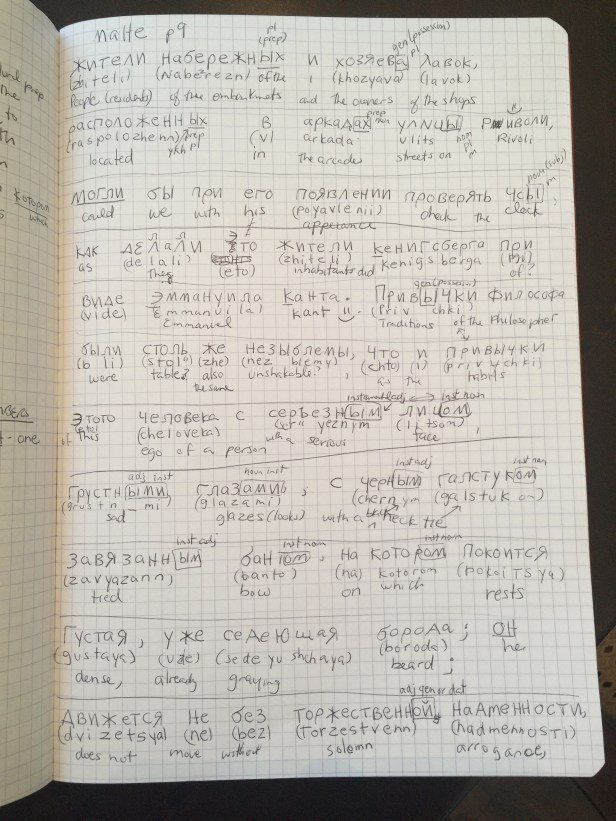 мане p9
pl
(prep)
gen (possession)
pl
жители набережных и хозяева лавок,
(zhiteli) (naberezn) of the i (khozyava) (lavok)
People (residents) of the embankments and the owners of the shops
prep
расположенных в аркадах улицы Риволи,
(raspolozhenn) prep (v) arkada ulits nom Rivoli
ykh pl pl
located in the arcades streets on m
noun (subj)
могли бы при его появлении проверять часы,
could we with his (poyavlenii) check the clock,
appearance
как делали это жители кенигсберга при
as (delali) (eto) (zhiteli) kenigsberga (pri)
They inhabitants did of?
gen (possession)
виде Эммануила канта. Привычки философа
(vide) Emmanuila) kant (priv chki)
Emmanuel Traditions of the Philosopher
были столь же незыблемы, что и привычки
(b li) (stol') (zhe) (nez blemy) (chto) (i) (privychki)
were table? also unshakable?, as the habits
the same
instrumental adj inst noun
этого человека с серьезным лицом,
(cheloveka) (ser" yeznym (litsom)
of this ego of a person with a serious face,
adj inst noun inst inst adj inst noun
грустными глазами, с черным галстуком
(grustn _ mi (glazami) (chern ym (galstuk om)
sad glazes (looks) with a black neck tie
inst adj inst noun inst noun
завязанным бантом, на котором покоится
(zavyazann) (banto) (na) kotorom (pokoiTS ya)
tied bow on which rests
Густая, уже седеющая борода; он
(gustaya) (uze) (sedeyushchaya) (boroda) he
dense, already graying beard;
adj gen or dat
движется не без торжественной надменности,
(dvizetsya) (ne) (bez) (torzestvenn) (nadmennosti)
does not move without solemn arrogance,
prep
the
to
которой
which
one